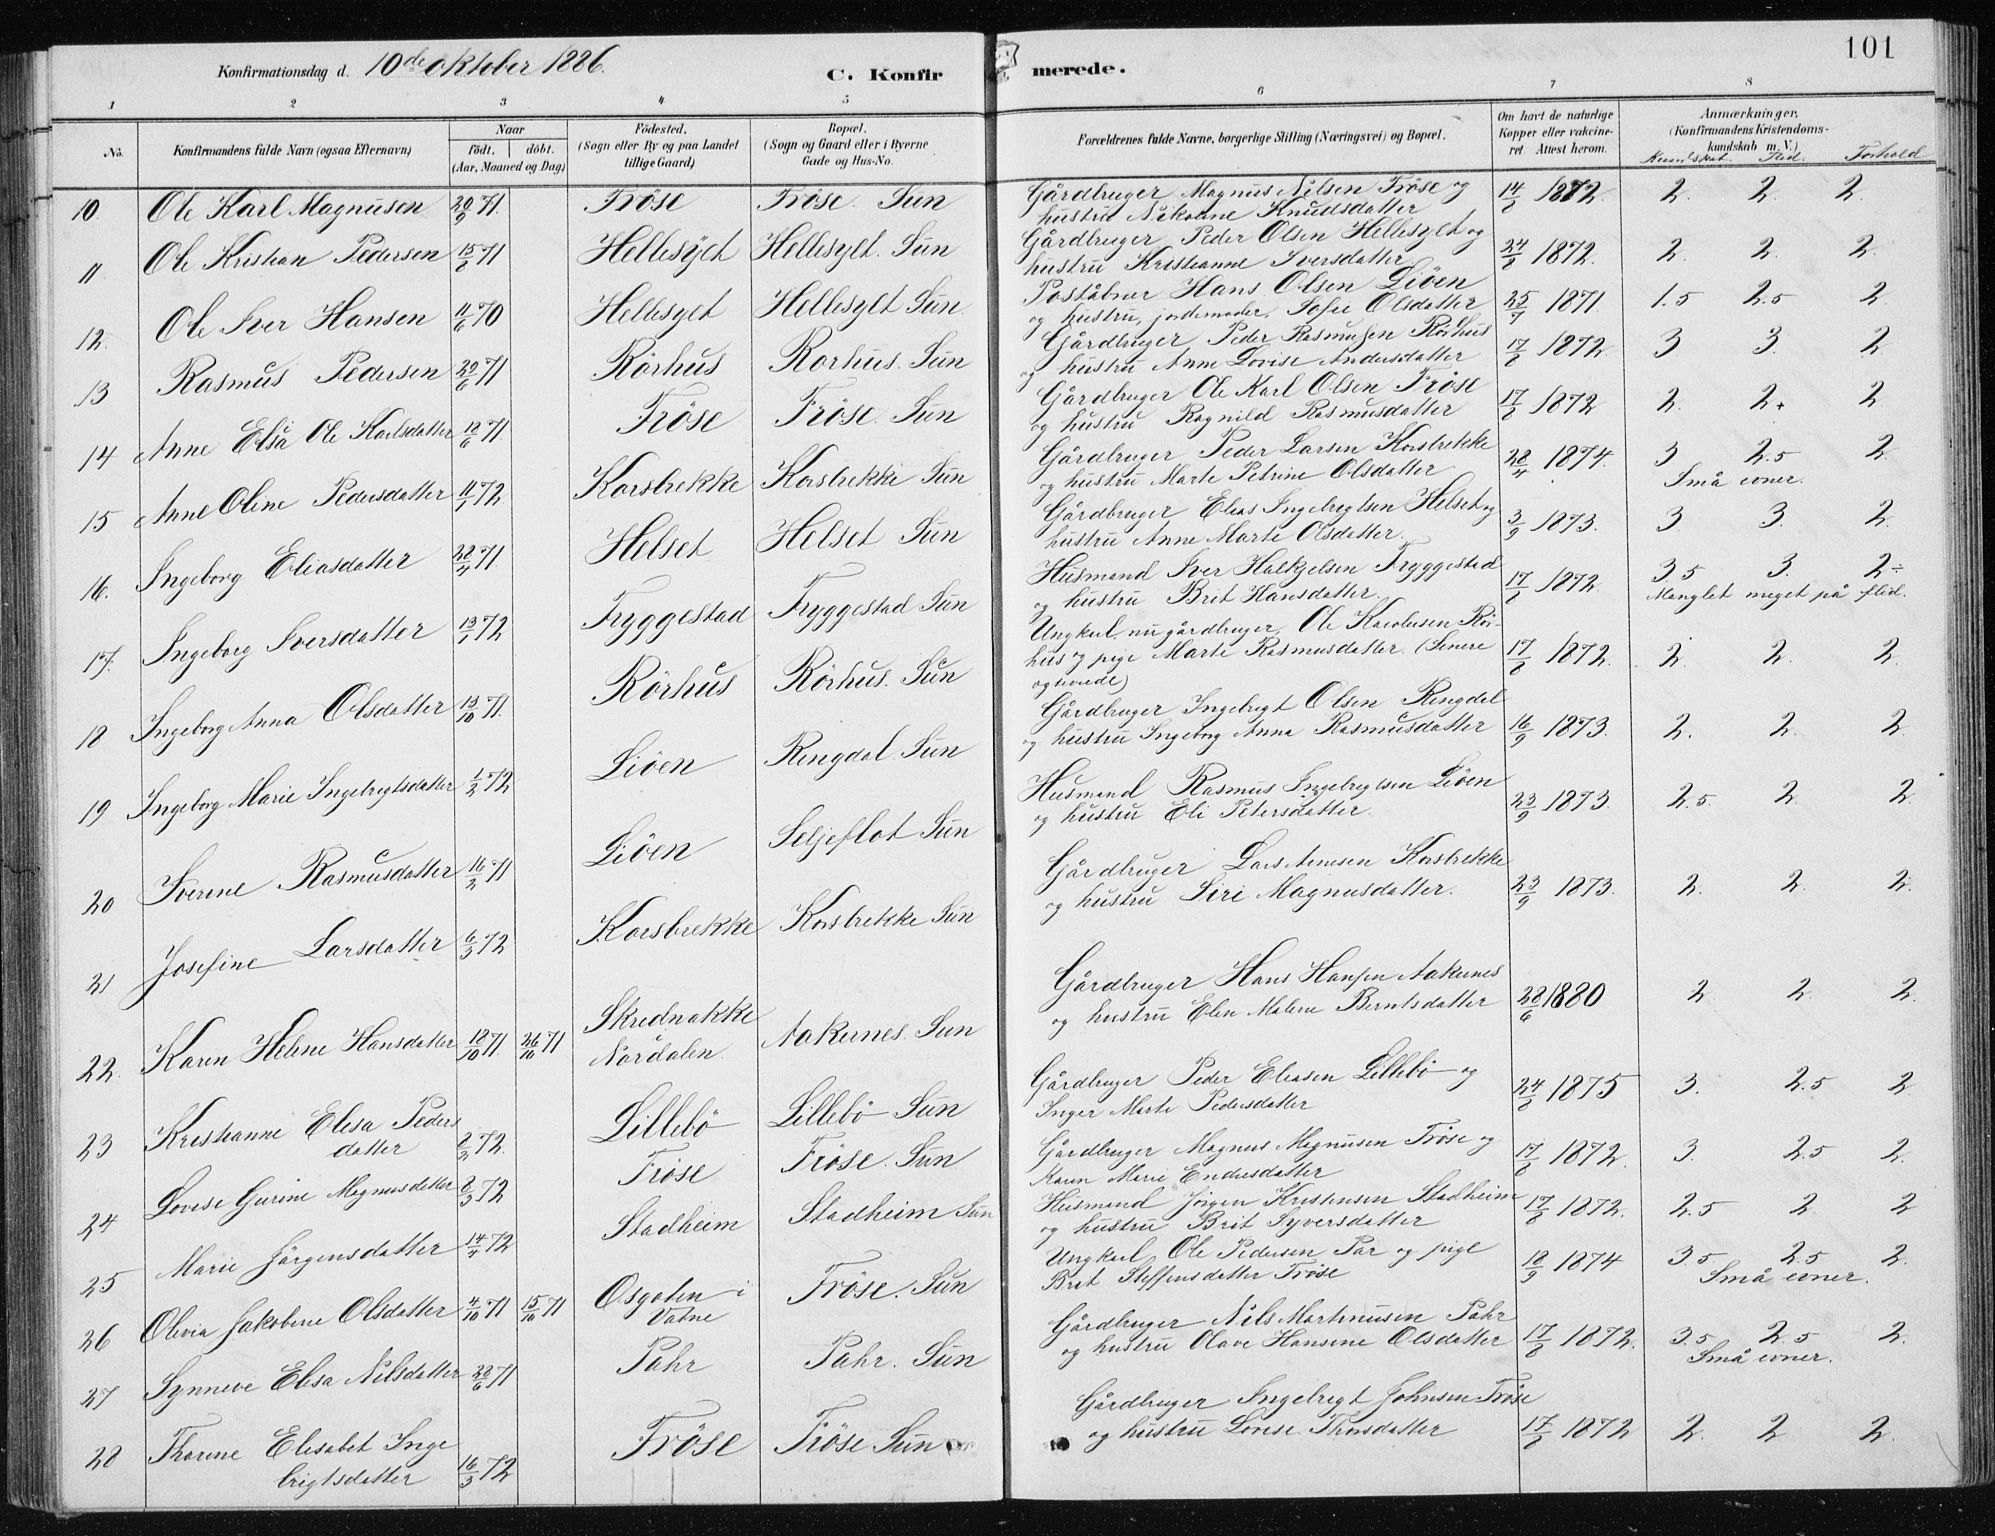 Konfirmationsdag d. 10de oktober 1886.
C. Konfirmerede.
101
1 2 3 4 5 6 7 8
No.
Konfirmandens fulde Navn (ogsaa Efternavn)
Naar
født. døbt.
(Aar, Maaned og Dag)
Fødested.
(Sogn eller By og paa Landet
tillige Gaard)
Bopæl.
(Sogn og Gaard eller i Byerne
Gade og Hus-No.
Forældrenes fulde Navne, borgerlige Stilling (Næringsvei) og Bopæl.
Om havt de naturlige
Kopper eller vakcine-
ret Attest herom.
Anmærkninger.
(Konfirmandens Kristendoms-
kundskab m. V.)
Kundskab. Flid. Forhold
10. Ole Karl Magnusen 20/9 71. Fröse Fröse. Sun
Gårdbruger Magnus Nilsen Fröse og
hustru Nikoline Knudsdatter
14/8 1872. 2. 2. 2.
11 Ole Kristian Pedersen 15/8 71 Hellesylt Hellesylt. Sun
Gårdbruger Peder Olsen Hellesylt og
hustru Kristianne Iversdatter
24/8 1872. 2. 2. 2.
12. Ole Iver Hansen 11/6 70 Hellesylt Hellesylt Sun.
Poståbner Hans Olsen Liöen
og hustru, jordemoder, Sofie Olsdatter
25/7 1871. 1.5 2.5 2.
13 Rasmus Pedersen 20/6 71 Rörhus Rorhus. Sun
Gårdbruger Peder Rasmusen Rörhus
og hustru Anne Lovise Andersdatter
17/8 1872 3 3. 2
14 Anne Elsa Ole Karlsdatter 18/6 71 Fröse Fröse. Sun
Gårdbruger Ole Karl Olsen Fröse
og hustru Ragnild Rasmusdatter
17/8 1872 2. 2+ 2.
15 Anne Oline Pedersdatter 11/1 72 Korsbrekke Korsbrekke Sun
Gårdbruger Peder Larsen Korsbrekke
og hustru Marte Petrine Olsdatter
28/4 1874. 3 2.5 2.
Små evner.
16. Ingeborg Eliasdatter 28/4 71 Helset Helset Sun
Gårdbruger Elias Ingebrigtsen Helset og
hustru Anne Marte Olsdatter.
3/9 1873. 3 3. 2.
17. Ingeborg Iversdatter 13/1 72 Tryggestad Tryggestad Sun
Husmand Iver Halkjelsen Tryggestad
og hustru Brit Hansdatter.
17/8 1872. 3.5 3. 2÷
Manglet meget på flid.
18 Ingeborg Anna Olsdatter 13/10 71. Rörhus Rörhus. Sun
Ungkarl, nu gårdbruger, Ole Karolusen Rör-
hus og pige Marte Rasmusdatter. (Senere
ægteviede)
17/8 1872. 2. 2. 2.
19 Ingeborg Marie Ingebrigtsdatter 1/2 72 Liöen Ringdal Sun
Gårdbruger Ingebrigt Olsen Ringdal
og hustru Ingeborg Anna Rasmusdatter
16/9 1873. 2. 2. 2.
20 Iverine Rasmusdatter 16/2 71 Liöen Seljeflot Sun
Husmand Rasmus Ingebrigtsen Liöen
og hustru Eli Petersdatter.
23/9 1873. 2.5. 2. 2.
21 Josefine Larsdatter 6/3 72 Korsbrekke Korsbrekke Sun
Gårdbruger Lars Arnesen Korsbrekke
og hustru Siri Magnusdatter.
23/9 1873. 2. 2. 2.
22. Karen Helene Hansdatter 18/10 71. 26/10 71 Skrednakke i
Nordalen. Aakernes. Sun
Gårdbruger Hans Hansen Aakernes
og hustru Elen Malene Berntsdatter
28/6 1880 2. 2. 2.
23 Kristianne Elisa Peders
datter 8/2 72. Lillebö Lillebö Sun
Gårdbruger Peder Eliasen Lillebö og
Inger Marte Pedersdatter
24/8 1875 3. 2.5 2.
24 Lovise Gurine Magnusdatter 8/3 72 Fröse Fröse. Sun
Gårdbruger Magnus Magnusen Fröse og
Karen Marie Endresdatter
17/8 1872. 3. 2.5 2.
25 Marie Jörgensdatter 14/4 72 Stadheim Stadheim Sun
Husmand Jörgen Kristensen Stadheim
og hustru Brit Syversdatter
17/8 1872. 2.5 2. 2
26 Olivia Jakobine Olsdatter 4/10 71 15/10 71 Osgaten i
Vatne Fröse. Sun
Ungkarl Ole Pedersen Par og pige
Brit Steffensdatter Fröse
18/9 1874 3.5 2.5 2.
Små evner.
27 Synneve Elisa Nilsdatter 28/6 71 Pahr Pahr. Sun
Gårdbruger Nils Martinusen Pahr
og hustru Olave Hansine Olsdatter
17/8 1872. 3.5 2.5 2.
Små evner.
28 Thorine Elisabet Inge
brigtsdatter 16/3 72 Fröse Fröse Sun
Gårdbruger Ingebrigt Johnsen Fröse
og hustru Lovise Thorsdatter
17/8 1872 2. 2 2.